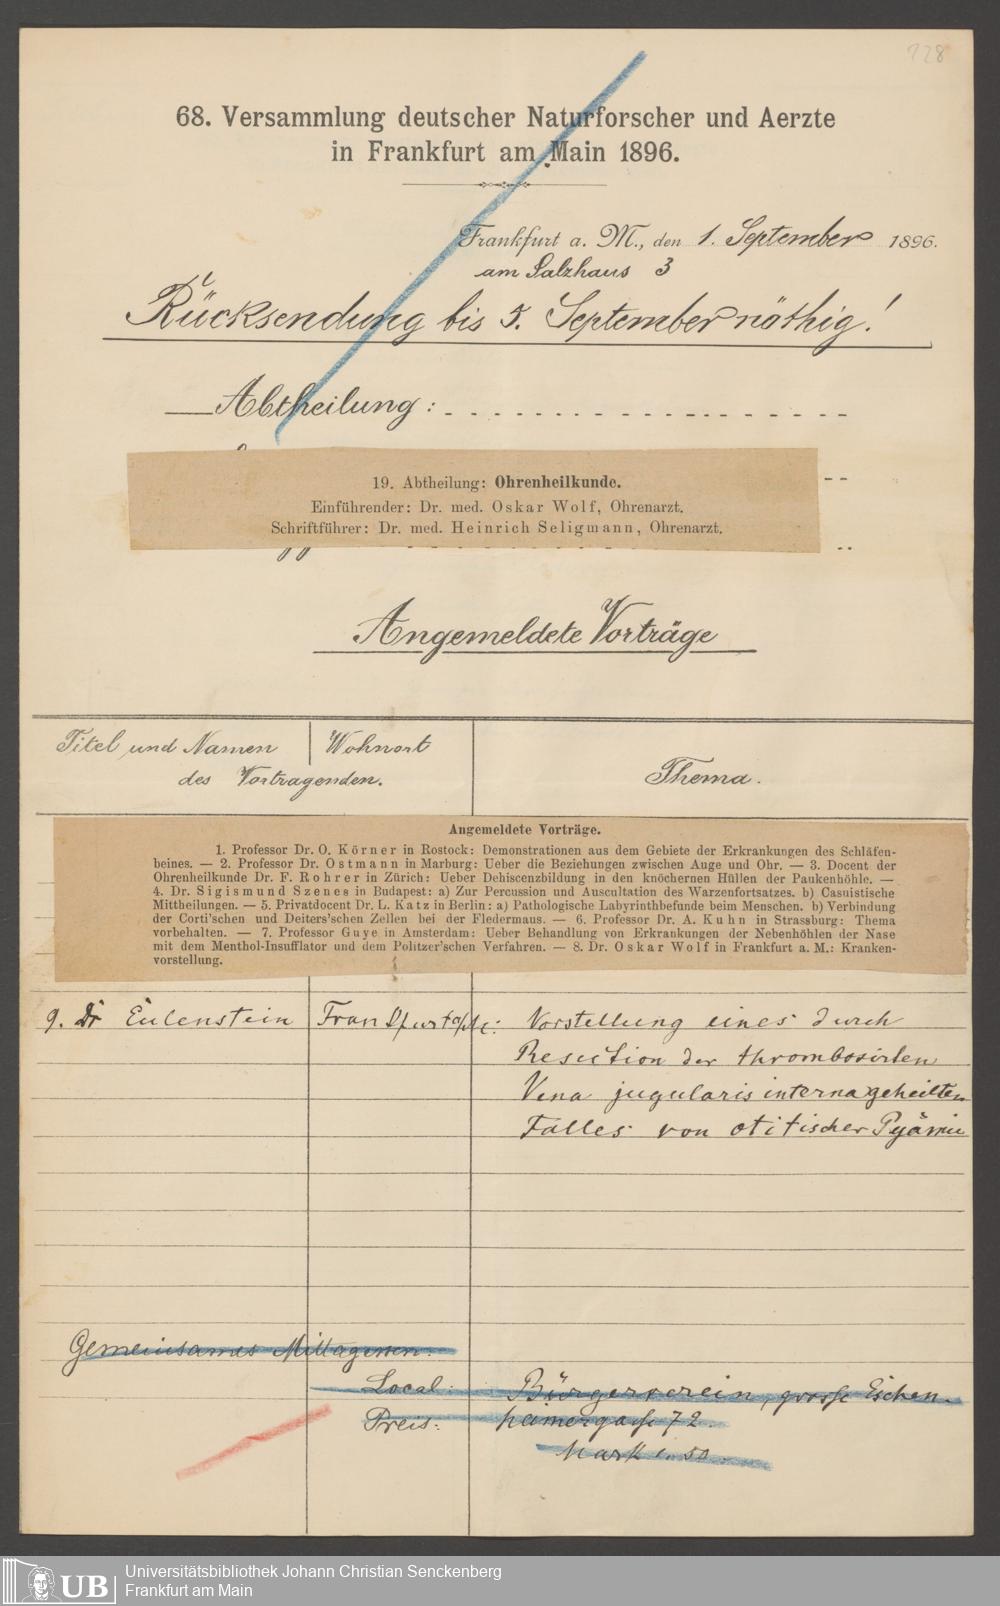 228
68. Versammlung deutscher Naturforscher und Aerzte
in Frankfurt am Main 1896.
Frankfurt a. M., den 1. September 1896.
am Salzhaus 3
Rücksendung bis 5. September nöthig!
Abtheilung:
19. Abtheilung: Ohrenheilkunde.
Einführender: Dr. med. Oskar Wolf, Ohrenarzt.
Schriftführer: Dr. med. Heinrich Seligmann, Ohrenarzt.
Angemeldete Vorträge
Titel und Namen | Wohnort
des Vortragenden.
Thema.
Angemeldete Vorträge.
1. Professor Dr. O. Körner in Rostock: Demonstrationen aus dem Gebiete der Erkrankungen des Schläfen-
beines. — 2. Professor Dr. Ostmann in Marburg: Ueber die Beziehungen zwischen Auge und Ohr. — 3. Docent der
Ohrenheilkunde Dr. F. Rohrer in Zürich: Ueber Dehiscenzbildung in den knöchernen Hüllen der Paukenhöhle. —
4. Dr. Sigismund Szenes in Budapest: a) Zur Percussion und Auscultation des Warzenfortsatzes. b) Casuistische
Mittheilungen. — 5. Privatdocent Dr. L. Katz in Berlin: a) Pathologische Labyrinthbefunde beim Menschen. b) Verbindung
der Corti'schen und Deiters'schen Zellen bei der Fledermaus. — 6. Professor Dr. A. Kuhn in Strassburg: Thema
vorbehalten. — 7. Professor Guye in Amsterdam: Ueber Behandlung von Erkrankungen der Nebenhöhlen der Nase
mit dem Menthol-Insufflator und dem Politzer'schen Verfahren. — 8. Dr. Oskar Wolf in Frankfurt a. M.: Kranken-
vorstellung.
9. Dr Eulenstein Frankfurt a/M: Vorstellung eines durch
Resection der thrombosirten
Vena jugularis interna geheilten
Falles von otitischer Pyämie
Gemeinsames Mittagessen:
Local: Bürgerverein, grosse Eschen-
Preis: heimergasse 72.
Mark 1.50.
Universitätsbibliothek Johann Christian Senckenberg
Frankfurt am Main
UB